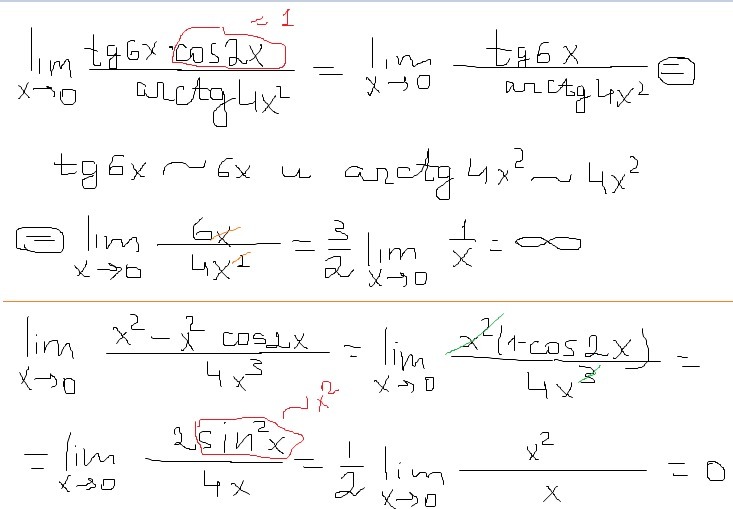 lim x→0 tg6x·cos2x / arctg4x² = lim x→0 tg6x / arctg4x² = ~ 1
tg6x ~ 6x и arctg 4x² ~ 4x²
= lim x→0 6x / 4x² = 3/2 lim x→0 1/x = ∞
lim x→0 x² - x² cos2x / 4x³ = lim x→0 x²(1-cos2x) / 4x³ =
= lim x→0 2sin²x / 4x = 1/2 lim x→0 x² / x = 0 ~x²